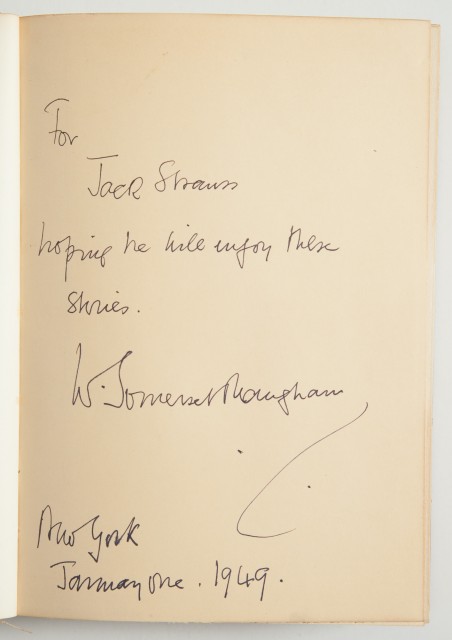 For
Jack Strauss
hoping he will enjoy these
stories.
W. Somerset Maugham
New York
January one. 1949.